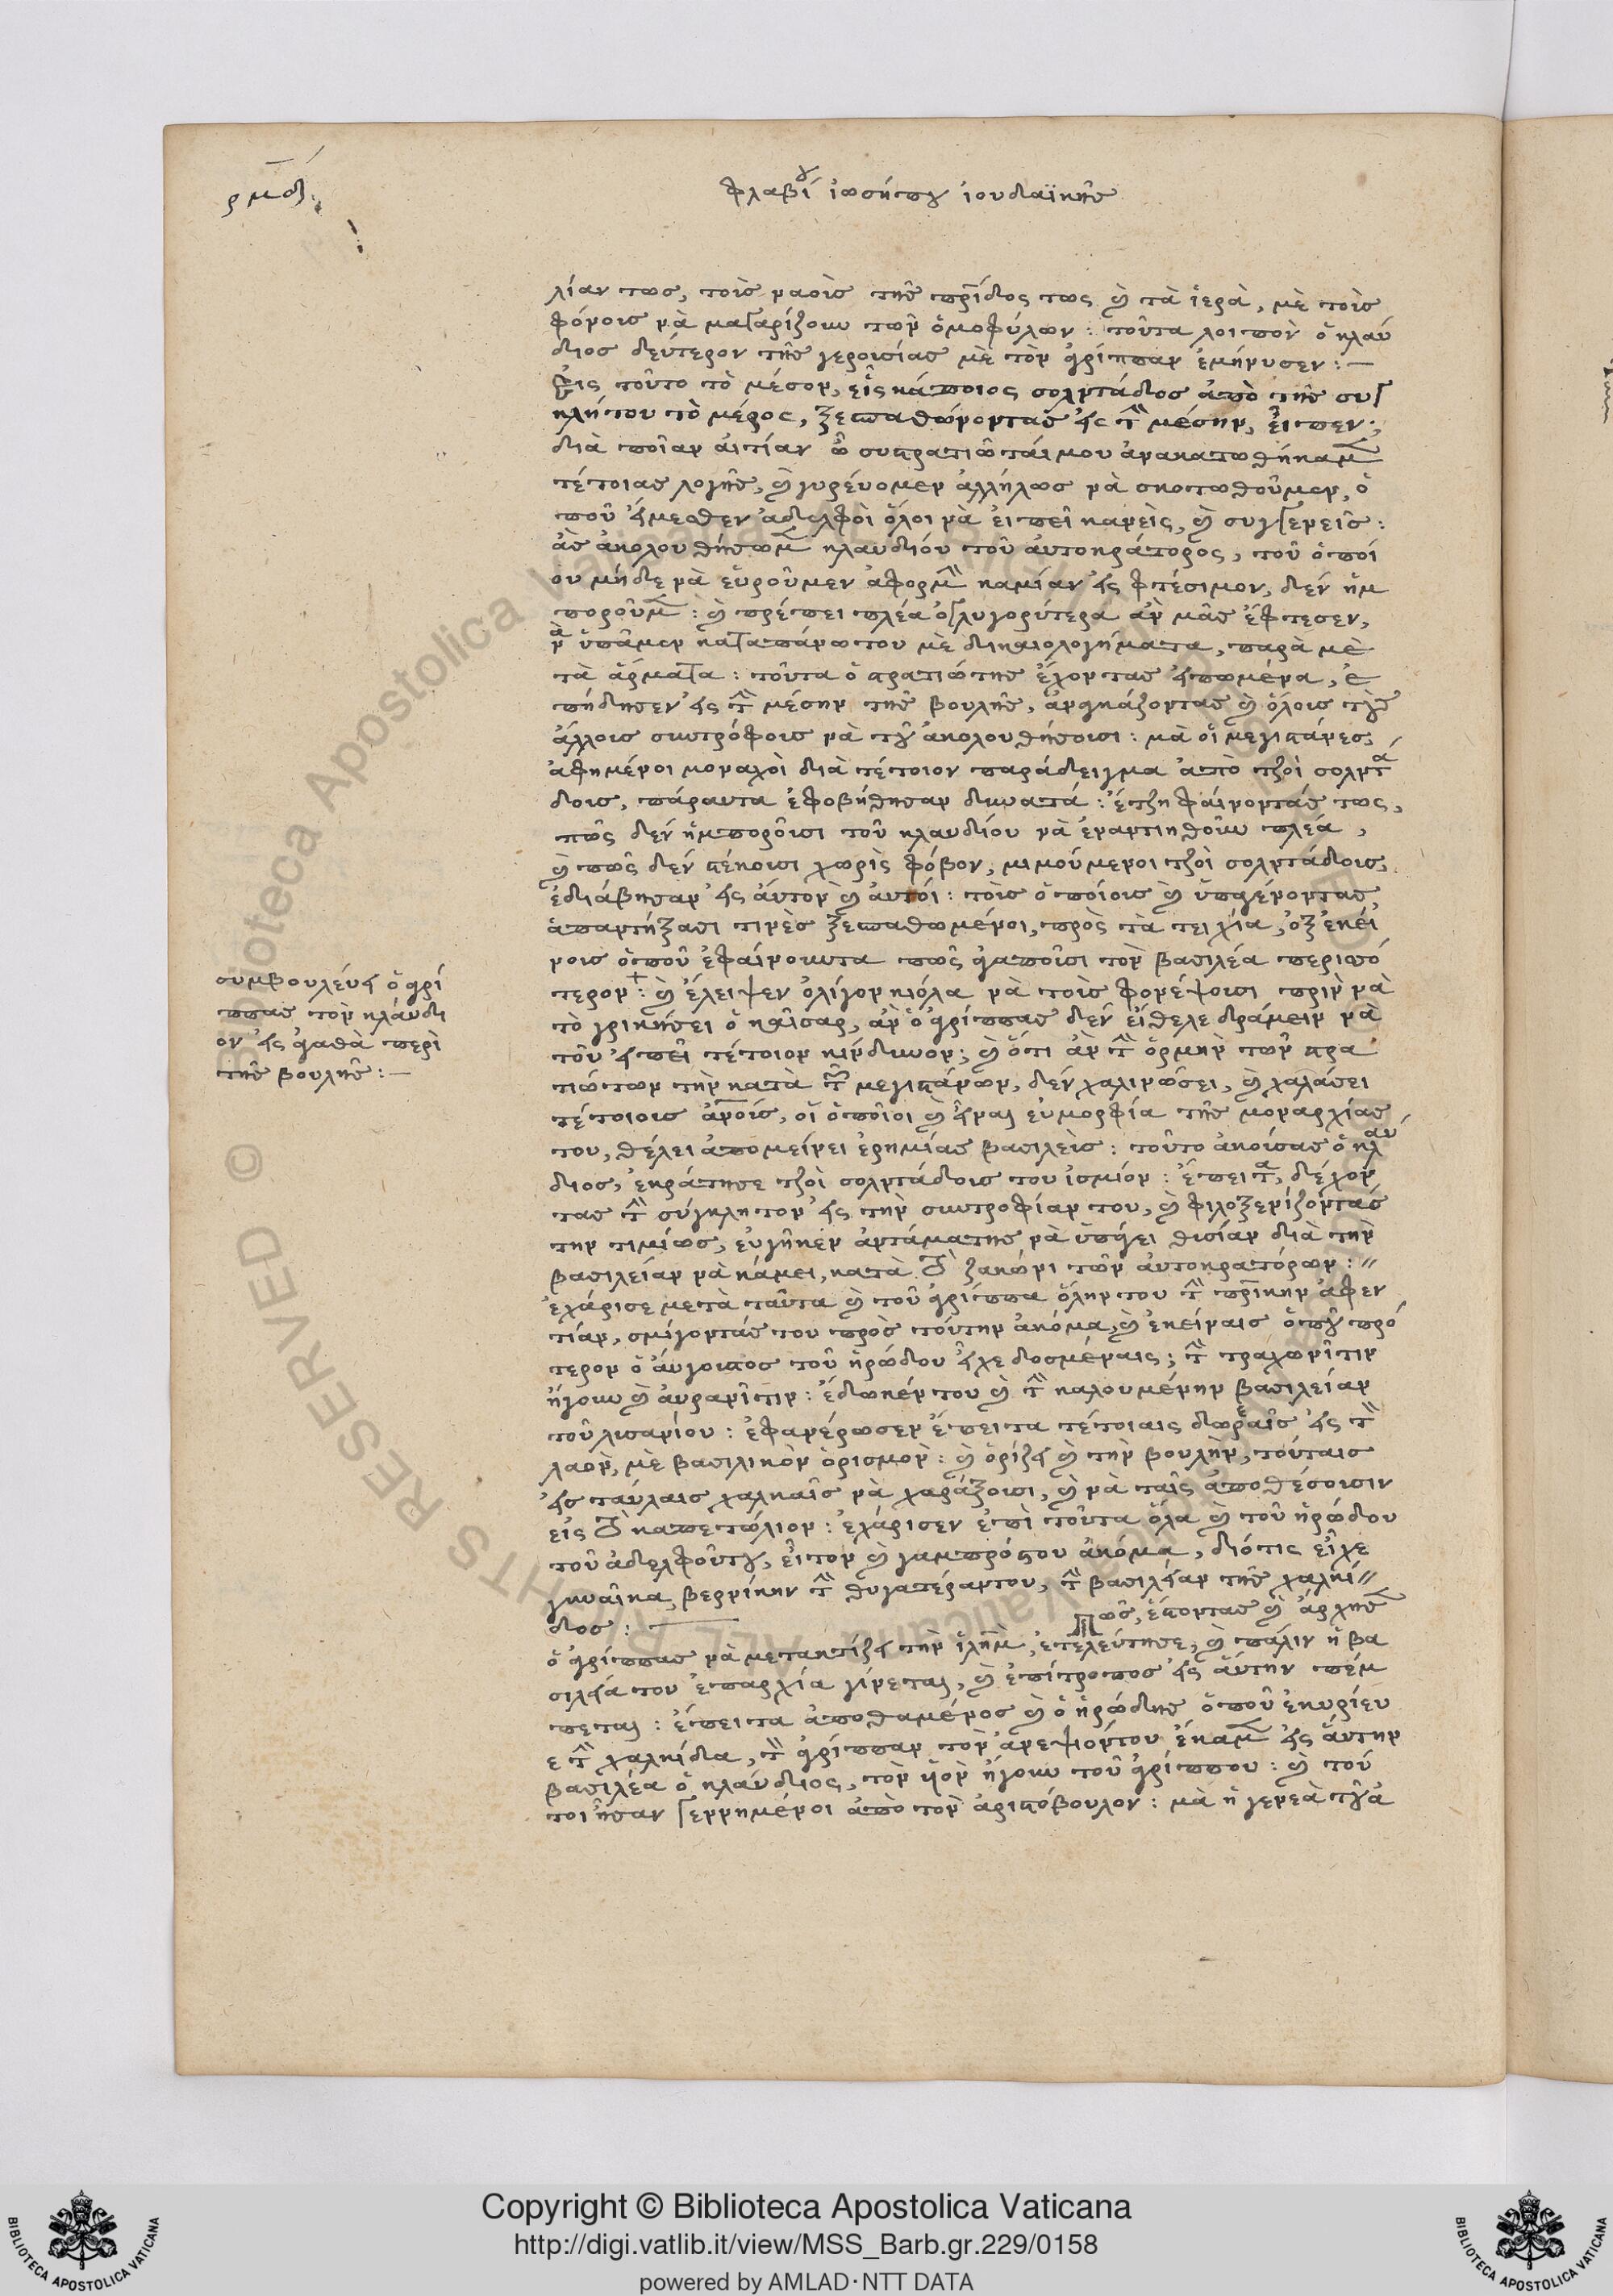 ρμδ.
φλαβίου ἰωσήπου ἰουδαϊκῆς
λίαν τωσ, τοὶς ναοὶς τῆς πρ̅ίδος τως ϗ τὰ ἱερὰ, μὲ τοὶς
φόνοις νὰ μαγαρίζουν τῶν ὁμοφύλων : τοῦτα λοιπὸν ὁ κλαύ
διος δεύτερον τῆς γερουσίας μὲ τὸν ἀγρίππαν ἐμήνυσεν : —
Εἰς τοῦτο τὸ μέσον, εἷς κάποιος σολντάδος ἀπὸ τῆς συγ
κλήτου τὸ μέρος, ξεσπαθώνοντας εἰς τὴ μέσην, εἶπεν :
διὰ ποῖαν αἰτίαν ὦ συστρατιῶται μου ἀνακατωθήκαμ̅
τέτοιας λογῆς, ϗ γυρεύομεν ἀλλήλως νὰ σκοτωθοῦμεν, ὁ
ποῦ εἴμεσθεν ἀδελφοὶ ὅλοι νὰ εἰπεῖ κανεὶς, ϗ συγγενεῖς :
ἂς ἀκολουθήσωμ̅ κλαυδίου τοῦ αὐτοκράτορος, τοῦ ὁποί
ου μήδε νὰ εὑροῦμεν ἀφορμὴ καμίαν εἰς φτέσιμον, δὲν ἠμ
ποροῦμ̅ : ϗ πρέπει πλέα ὀγλυγορύτερα ἂν μᾶς ἔφτεσεν,
νὰ ὑπᾶμεν καταπάνωτου μὲ δικαιολογήματα, παρὰ μὲ
τὰ ἄρματα : τοῦτα ὁ στρατιώτης ἔχοντας εἰπωμένα, ἐ
πήδησεν εἰς τὴ μέσην τῆς βουλῆς, ἀναγκάζοντας ϗ ὅλοις τοὺς
ἄλλοις συντρόφοις νὰ τοῦ ἀκολουθήσουσι : μὰ οἱ μεγιστάνες
ἀφημένοι μοναχοὶ διὰ τέτοιον παράδειγμα ἀπὸ τζοὶ σολντά
δοις, πάραυτα ἐφοβήθησαν δυνατά : ἔτζη φαίνοντάς τως,
πῶς δὲν ἠμποροῦσι τοῦ κλαυδίου νὰ ἐναντιηθοῦν πλέα,
ϗ πῶς δὲν στέκουσι χωρὶς φόβον, μιμούμενοι τζοὶ σολντάδοις,
ἐδιάβησαν εἰς αὐτὸν ϗ αὐτοί : τοὶς ὁποίοις ϗ ὑπαγένοντας,
ἀπαντήξασι τινὲς ξεσπαθωμένοι, πρὸς τὰ τειχία, ὀξ ἐκεί
νοις ὁποῦ ἐφαίνουντα πῶς ἀγαποῦσι τὸν βασιλέα περισσό
τερον : ϗ ἔλειψεν ὀλίγον κιόλα νὰ τοὶς φονέψουσι πρὶν νὰ
τὸ γρικήσει ὁ καῖσαρ, ἂν ὁ ἀγρίππας δὲν εἴθελε δράμειν νὰ
τοῦ εἰπεῖ τέτοιον κίνδυνον ; ϗ ὅτι ἂν τὴ ὅρμην τῶν στρα
τιώτων τὴν κατὰ τῶν μεγιστάνων, δὲν χαλινώσει, ϗ χαλάσει
τέτοιοις ἀν̅οίς, οἱ ὁποῖοι ϗ εἶναι εὐμορφία τῆς μοναρχίας
του, θέλει ἀπομείνει ἐρημίας βασιλεὶς : τοῦτο ἀκούσας ὁ κλαύ
διος, ἐκράτησε τζοὶ σολντάδοις του ἰσμιόν : ἔπειτα, δέχον
τας τὴ σύγκλητον εἰς τὴν συντροφίαν του, ϗ φιλοξενίζοντάς
την τιμίως, εὐγῆκεν ἀντάματης νὰ ὑπάγει θυσίαν διὰ τὴν
βασιλείαν νὰ κάμει, κατὰ τὸ ζακώνι τῶν αὐτοκρατόρων : //
ἐχάρισε μετὰ ταῦτα ϗ τοῦ ἀγρίππα ὅλην του τὴ πρ̅ικὴν ἀφεν
τίαν, σμίγοντάς του πρὸς τούτην ἀκόμα, ϗ ἐκείναις ὁποῦ πρό
τερον ὁ αὔγουστος τοῦ ἡρώδου εἶχε δοσμέναις ; τὴ τραχωνῖτιν
ἤγουν ϗ αὐρανῖτιν : ἔδωκέν του ϗ τὴ καλουμένην βασιλείαν
τοῦ λισανίου : ἐφανέρωσεν ἔπειτα τέτοιαις δωρεαῖς εἰς τὸ
λαὸν, μὲ βασιλικὸν ὁρισμὸν : ϗ ὁρίζει ϗ τὴν βουλὴν, τούταις
εἰς ταύλαις χαλκαῖς νὰ χαράξουσι, ϗ νὰ ταῖς ἀποθέσουσιν
εἰς τὸ καπετώλιον : ἐχάρισεν ἐπὶ τοῦτα ὅλα ϗ τοῦ ἡρώδου
τοῦ ἀδελφοῦτου, εἶτον ϗ γαμπρόςτου ἀκόμα, διότις εἶχε
γυναῖκα βερνίκην τὴ θυγατέραντου, τὴ βασιλείαν τῆς χαλκί //
δος : — Πῶς, ἔστοντας ϗ ἀρχῆς
ὁ ἀγρίππας νὰ μεταχτίζει τὴν ἱλ̅ημ, ἐτελεύτησε, ϗ πάλιν ἡ βα
σιλεία του ἐπαρχία γίνεται, ϗ ἐπίτροπος εἰς αὔτην πέμ
πεται : ἔπειτα ἀποθαμένος ϗ ὁ ἡρώδης ὁποῦ ἐκυρίευ
ε τὴ χαλκίδα, τὸ ἀγρίππαν τὸν ἀνεψιόντου ἔκαμ̅ εἰς αὔτην
βασιλέα ὁ κλαύδιος, τὸν ϋὸν ἤγουν τοῦ ἀγρίππου : ϗ τού
τοι ἦσαν γεννημένοι ἀπὸ τὸν ἀριστόβουλον : μὰ ἡ γενεὰ τοῦ ἀ
συμβουλεύει ὁ ἀγρί
ππας τὸν κλαύδι
ον εἰς ἀγαθὰ περὶ
τῆς βουλῆς : —
Copyright © Biblioteca Apostolica Vaticana
http://digi.vatlib.it/view/MSS_Barb.gr.229/0158
powered by AMLAD·NTT DATA
BIBLIOTECA APOSTOLICA VATICANA
BIBLIOTECA APOSTOLICA VATICANA